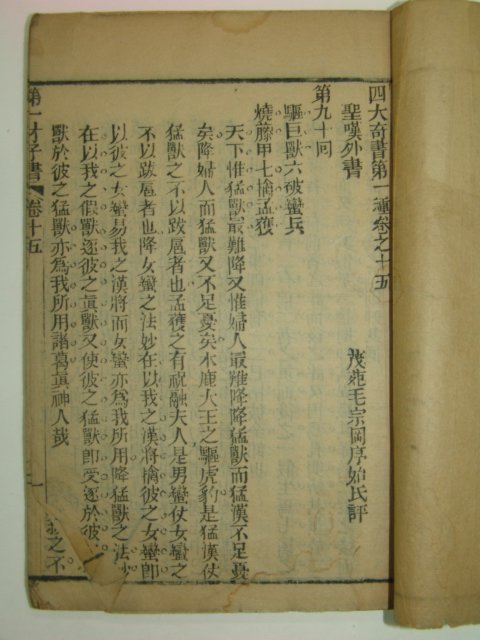 四大奇書第一種卷之十五
聖嘆外書
茂苑毛宗岡序始氏評
第九十回
驅巨獸六破蠻兵
燒藤甲七擒孟獲
天下惟猛獸最難降又惟婦人最難降降猛獸而猛漢不足憂
矣降婦人而猛獸又不足憂矣木鹿大王之驅虎豹是猛漢仗
猛獸之不以跋扈者也孟獲之有祝融夫人是男蠻仗女蠻之
不以跋扈者也降女蠻之法妙在以我之漢將擒彼之女蠻即
以彼之女蠻易我之漢將而女蠻亦為我所用降猛獸之法妙
在以我之假獸逐彼之真獸又使彼之猛獸即受逐於彼
獸於彼之猛獸亦為我所用諸葛真神人哉
之不
第一才子書 卷十五